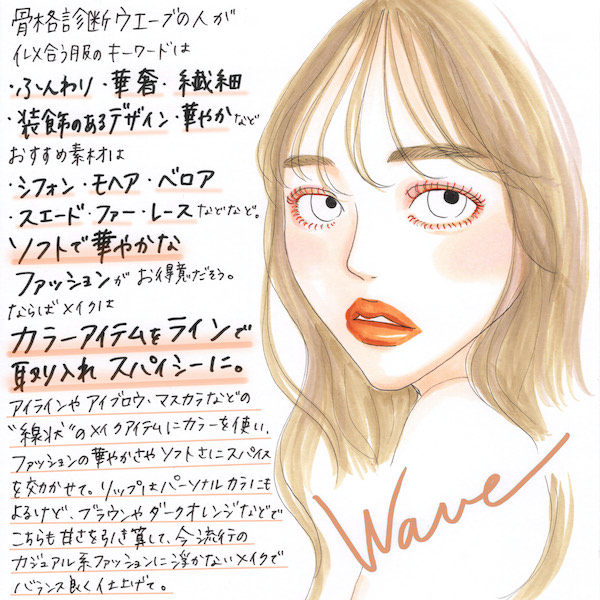 骨格診断ウェーブの人が
似合う服のキーワードは
・ふんわり・華奢・繊細
・装飾のあるデザイン・華やかなど
おすすめ素材は
・シフォン・モヘア・ベロア
・スエード・ファー・レースなどなど。
ソフトで華やかな
ファッションがお得意だそう。
ならばメイクは
カラーアイテムをラインで
取り入れスパイシーに。
アイラインやアイブロウ、マスカラなどの
"線状"のメイクアイテムにカラーを使い、
ファッションの華やかさやソフトさにスパイス
を効かせて。リップはパーソナルカラーにも
よるけど、ブラウンやダークオレンジなどで
こちらも甘さを引き算して、今流行の
カジュアル系ファッションに浮かないメイクで
バランス良く仕上げて。
Wave